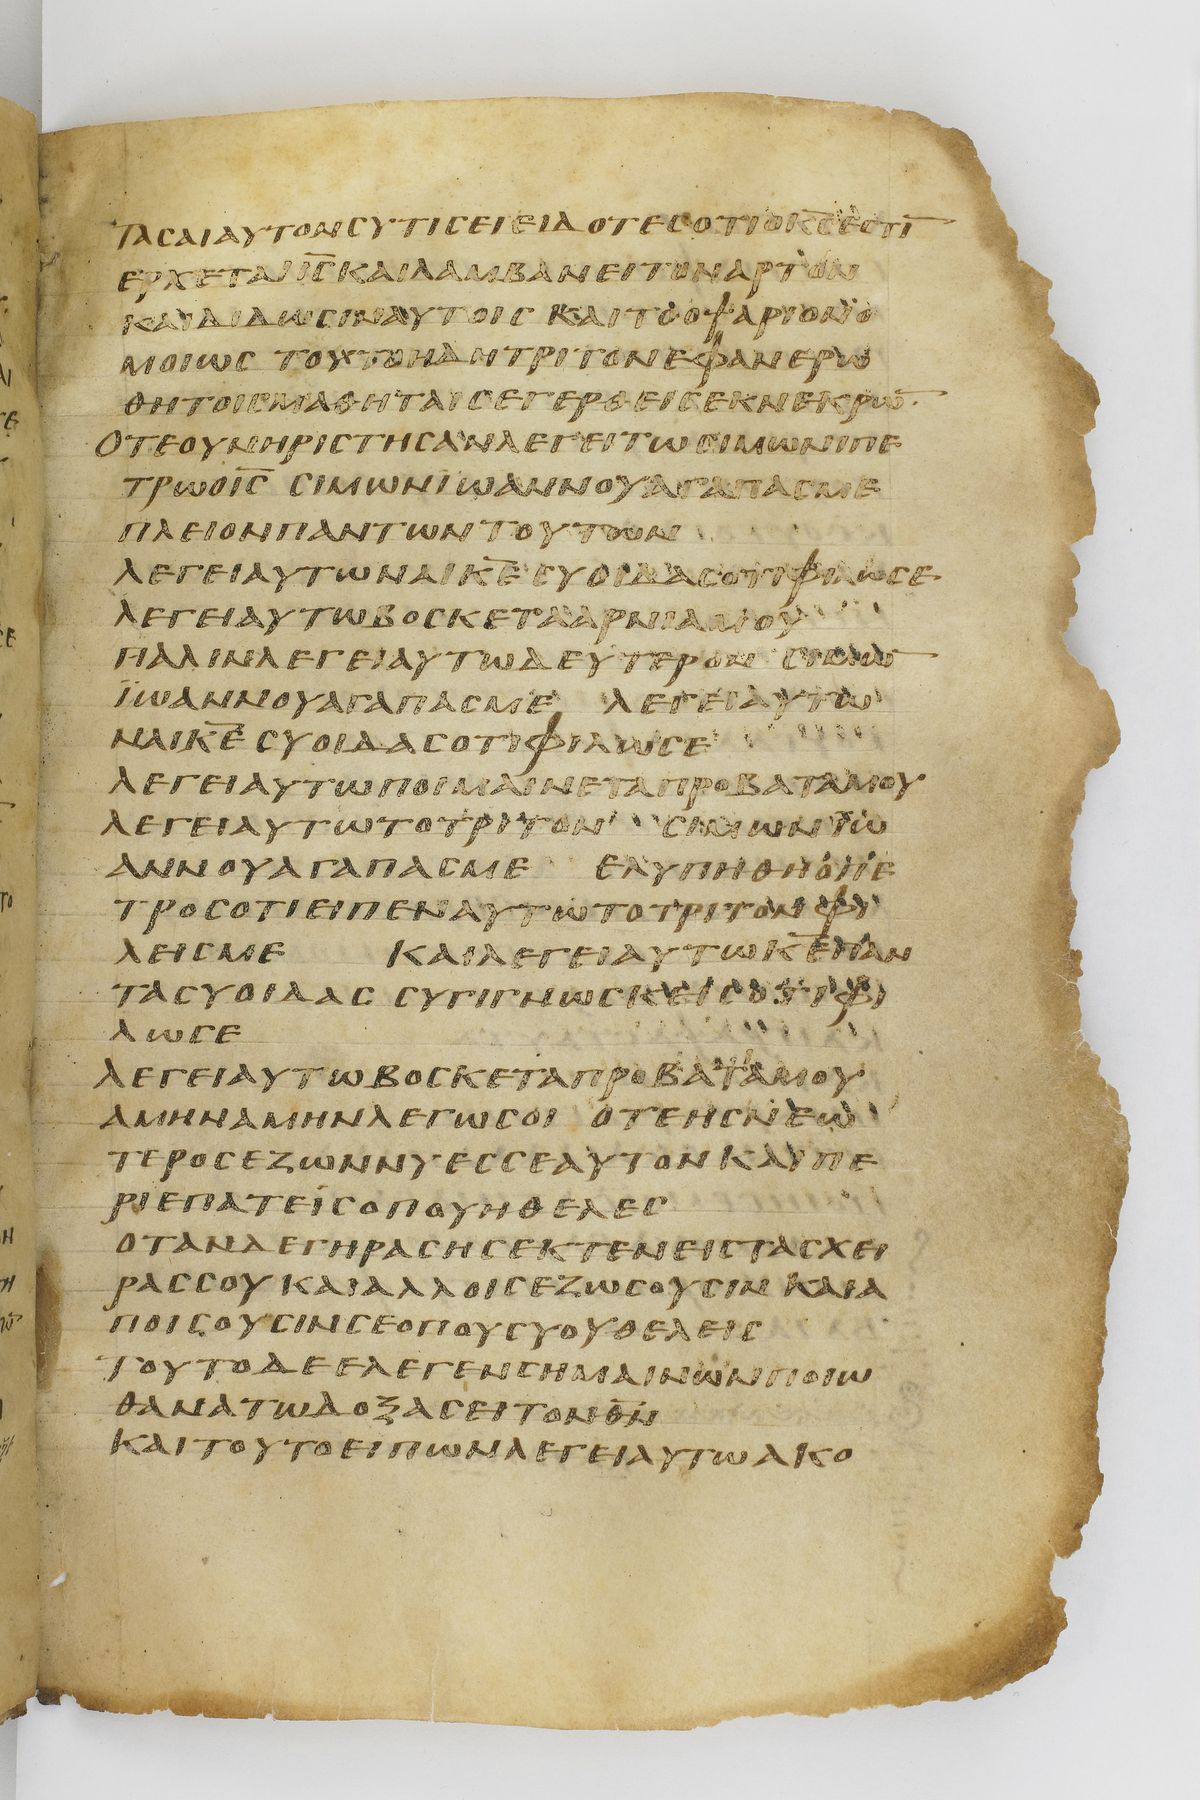 ΤΑСΑΙΑΥΤΟΝСΥΤΙСΕΙΕΙΔΟΤΕСΟΤΙΟΚ̅С̅ΕСΤΙ̅
ΕΡΧΕΤΑΙΙ̅С̅ΚΑΙΛΑΜΒΑΝΕΙΤΟΝΑΡΤΟΝ
ΚΑΙΔΙΔΩСΙΝΑΥΤΟΙС ΚΑΙΤΟΟΨΑΡΙΟΝΟ
ΜΟΙΩС ΤΟΥΤΟΗΔΗΤΡΙΤΟΝΕΦΑΝΕΡΩ
ΘΗΤΟΙСΜΑΘΗΤΑΙСΕΓΕΡΘΕΙСΕΚΝΕΚΡΩ̅
ΟΤΕΟΥΝΗΡΙСΤΗСΑΝΛΕΓΕΙΤΩСΙΜΩΝΙΠΕ
ΤΡΩΟΙ̅С̅ СΙΜΩΝΪΩΑΝΝΟΥΑΓΑΠΑСΜΕ
ΠΛΕΙΟΝΠΑΝΤΩΝΤΟΥΤΩΝ
ΛΕΓΕΙΑΥΤΩΝΑΙΚ̅Ε̅ СΥΟΙΔΑСΟΤΙΦΙΛΩСΕ
ΛΕΓΕΙΑΥΤΩΒΟСΚΕΤΑΑΡΝΙΑΜΟΥ
ΠΑΛΙΝΛΕΓΕΙΑΥΤΩΔΕΥΤΕΡΟΝ СΙΜΩ̅
ΪΩΑΝΝΟΥΑΓΑΠΑСΜΕ ΛΕΓΕΙΑΥΤΩ
ΝΑΙΚ̅Ε̅ СΥΟΙΔΑСΟΤΙΦΙΛΩСΕ
ΛΕΓΕΙΑΥΤΩΠΟΙΜΑΙΝΕΤΑΠΡΟΒΑΤΑΜΟΥ
ΛΕΓΕΙΑΥΤΩΤΟΤΡΙΤΟΝ СΙΜΩΝΪΩ
ΑΝΝΟΥΑΓΑΠΑСΜΕ ΕΛΥΠΗΘΗΟΠΕ
ΤΡΟСΟΤΙΕΙΠΕΝΑΥΤΩΤΟΤΡΙΤΟΝΦΙ
ΛΕΙСΜΕ ΚΑΙΛΕΓΕΙΑΥΤΩΚ̅Ε̅ΠΑΝ
ΤΑСΥΟΙΔΑС СΥΓΙΓΝΩСΚΕΙСΟΤΙΦΙ
ΛΩСΕ
ΛΕΓΕΙΑΥΤΩΒΟСΚΕΤΑΠΡΟΒΑΤΑΜΟΥ
ΑΜΗΝΑΜΗΝΛΕΓΩСΟΙ ΟΤΕΗСΝΕΩ
ΤΕΡΟСΕΖΩΝΝΥΕССΕΑΥΤΟΝΚΑΙΠΕ
ΡΙΕΠΑΤΕΙСΟΠΟΥΗΘΕΛΕС
ΟΤΑΝΔΕΓΗΡΑСΗСΕΚΤΕΝΕΙСΤΑСΧΕΙ
ΡΑССΟΥΚΑΙΑΛΛΟΙСΕΖΩСΟΥСΙΝΚΑΙΑ
ΠΟΙСΟΥСΙΝСΕΟΠΟΥСΥΟΥΘΕΛΕΙС
ΤΟΥΤΟΔΕΕΛΕΓΕΝСΗΜΑΙΝΩΝΠΟΙΩ
ΘΑΝΑΤΩΔΟΞΑСΕΙΤΟΝΘ̅Ν̅
ΚΑΙΤΟΥΤΟΕΙΠΩΝΛΕΓΕΙΑΥΤΩΑΚΟ